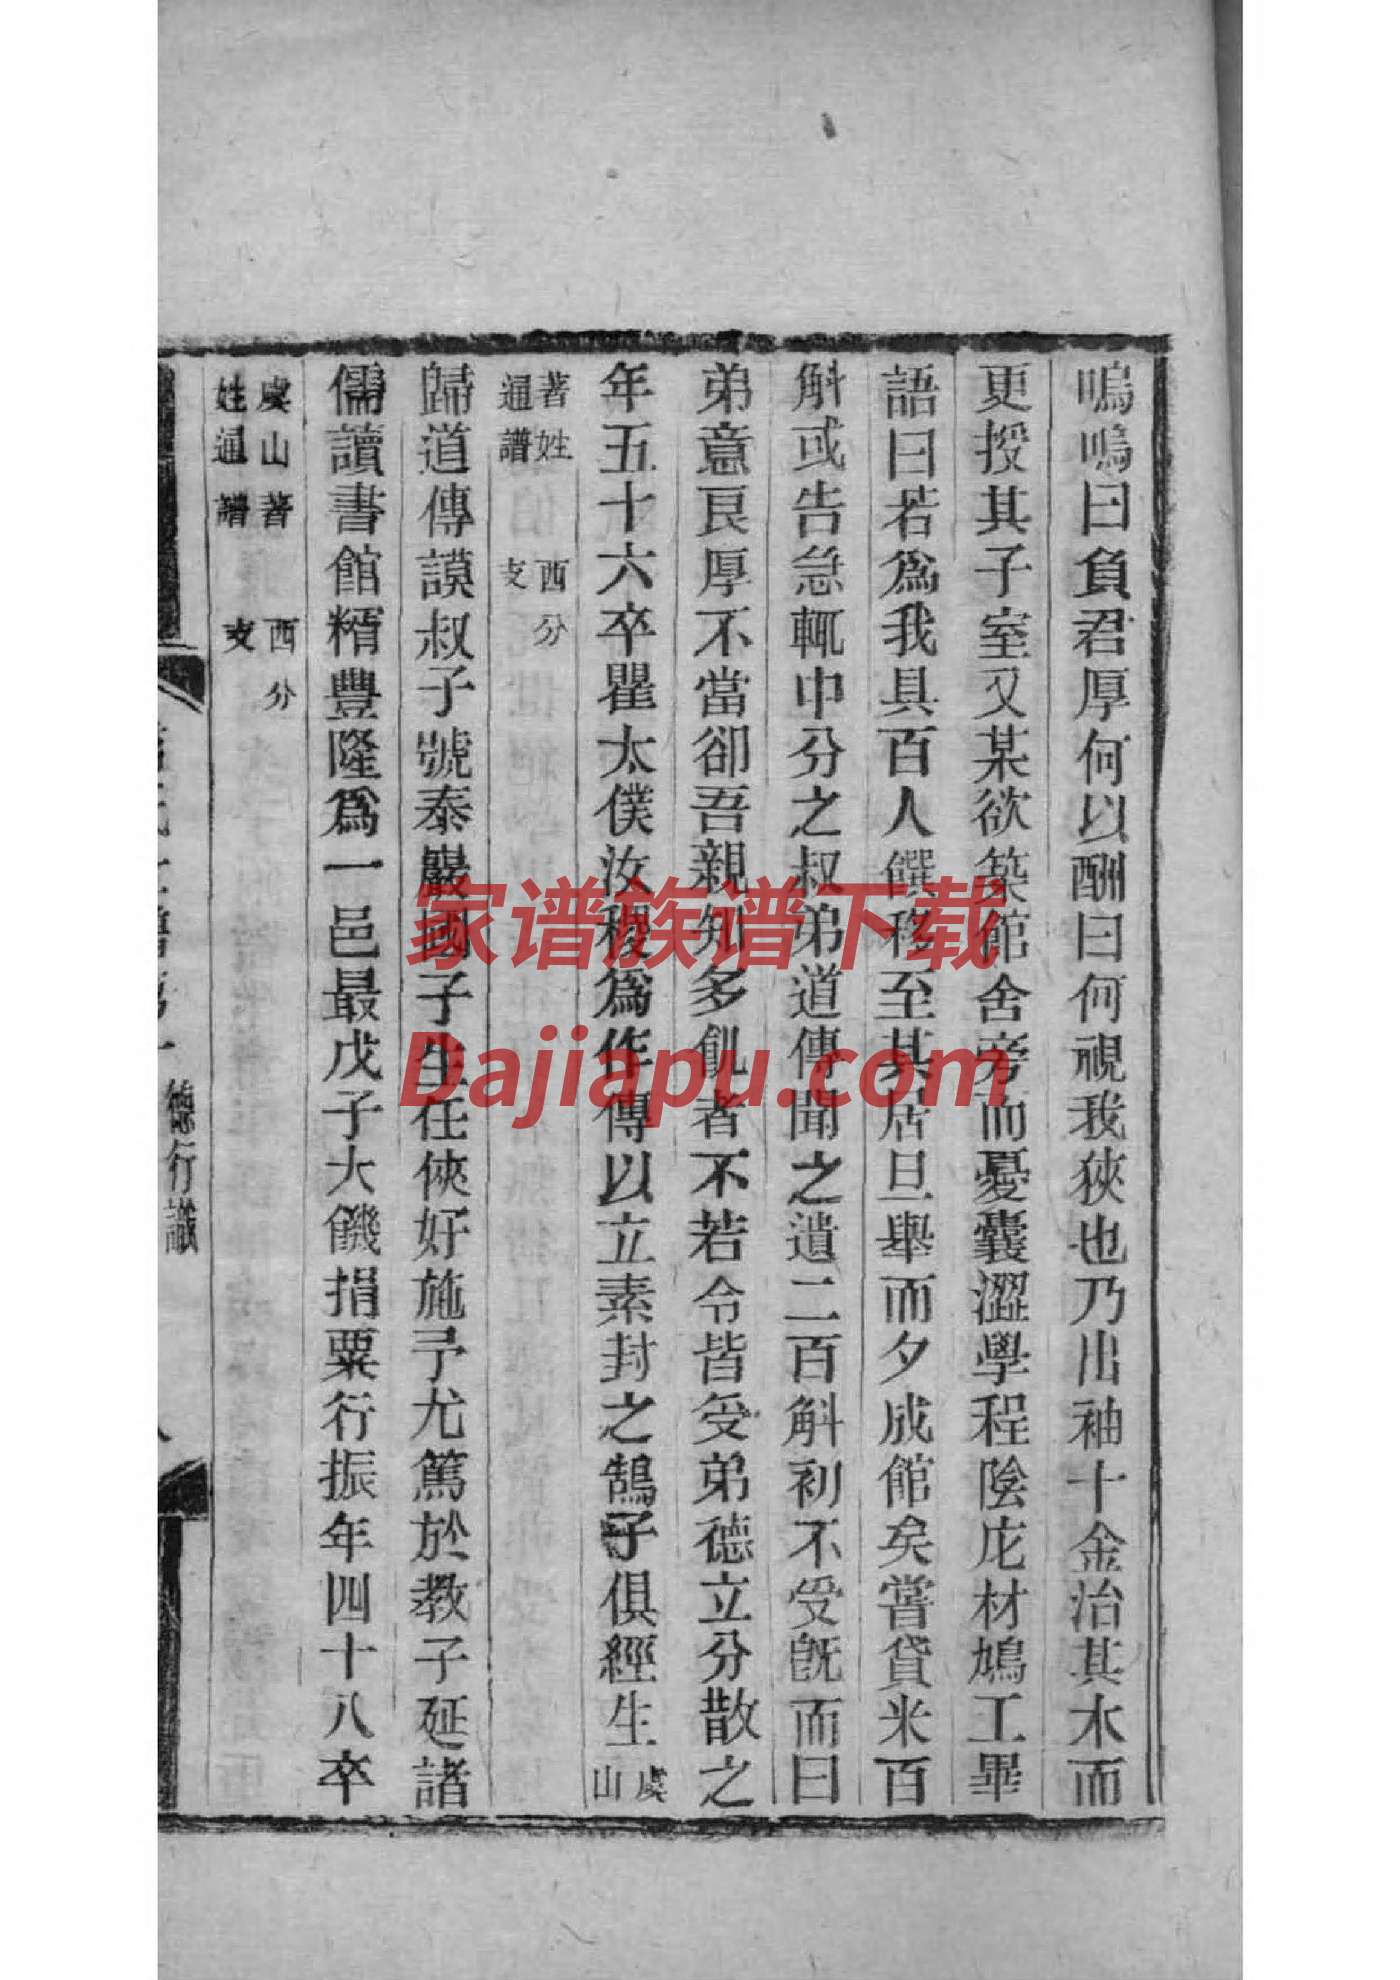 嗚嗚曰負君厚何以酬曰何視我狹也乃出袖十金治其木而
更授其子室又某欲築館舍旁而憂囊澀學程陰庀材鳩工畢
語曰若爲我具百人饌移至其居旦舉而夕成館矣嘗貸米百
斛或告急輒中分之叔弟道傳聞之遺二百斛初不受旣而曰
弟意良厚不當卻吾親知多飢者不若令皆受弟德立分散之
年五十六卒瞿太僕汝稷爲作傳以立素封之鵠子俱經生虞山
著姓通譜 西分支
歸道傳謨叔子號泰巖國子生任俠好施予尤篤於教子延諸
儒讀書館糈豐隆爲一邑最戊子大饑捐粟行振年四十八卒
虞山著姓通譜 西分支
德行識
家谱族谱下载
Dajiapu.com